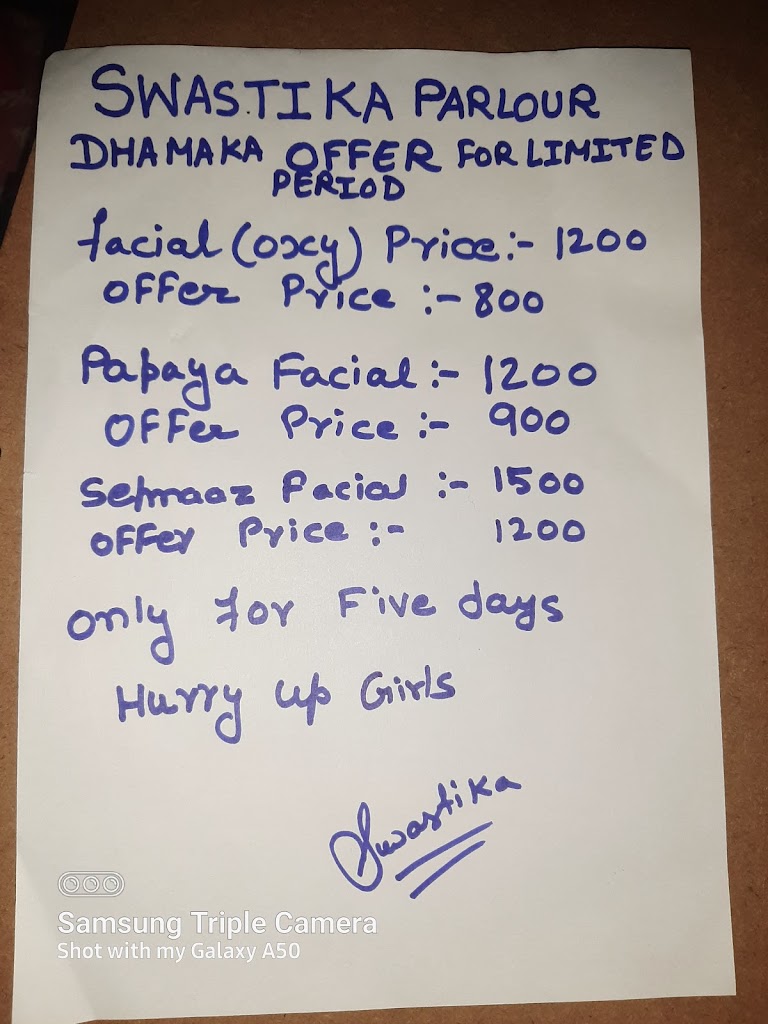 SWASTIKA PARLOUR
DHAMAKA OFFER FOR LIMITED
PERIOD
facial (oxy) Price:- 1200
OFFer Price :- 800
Papaya Facial :- 1200
OFFer Price :- 900
Facial :- 1500
OFFer Price :- 1200
only for Five days
Hurry up Girls
Swastika
Samsung Triple Camera
Shot with my Galaxy A50